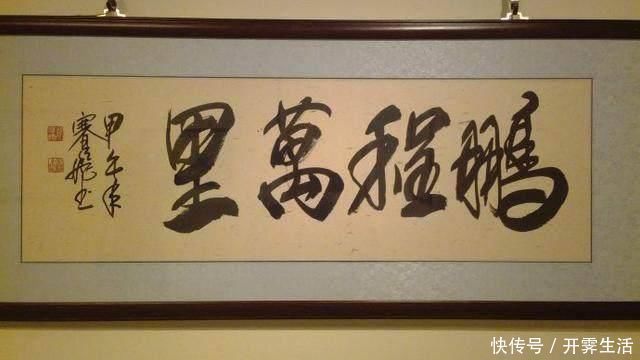 鵬程萬里
甲午年
书
快传号 / 开霁生活